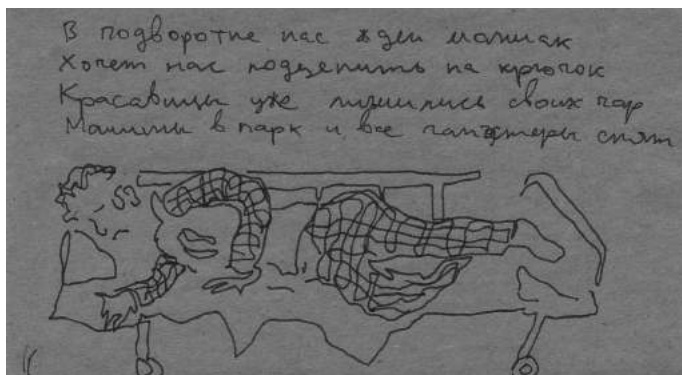 В подворотне нас ждет маниак
Хочет нас подцепить на крючок
Красавицы уже лишились своих чар
Машины в парк и все гангстеры спят